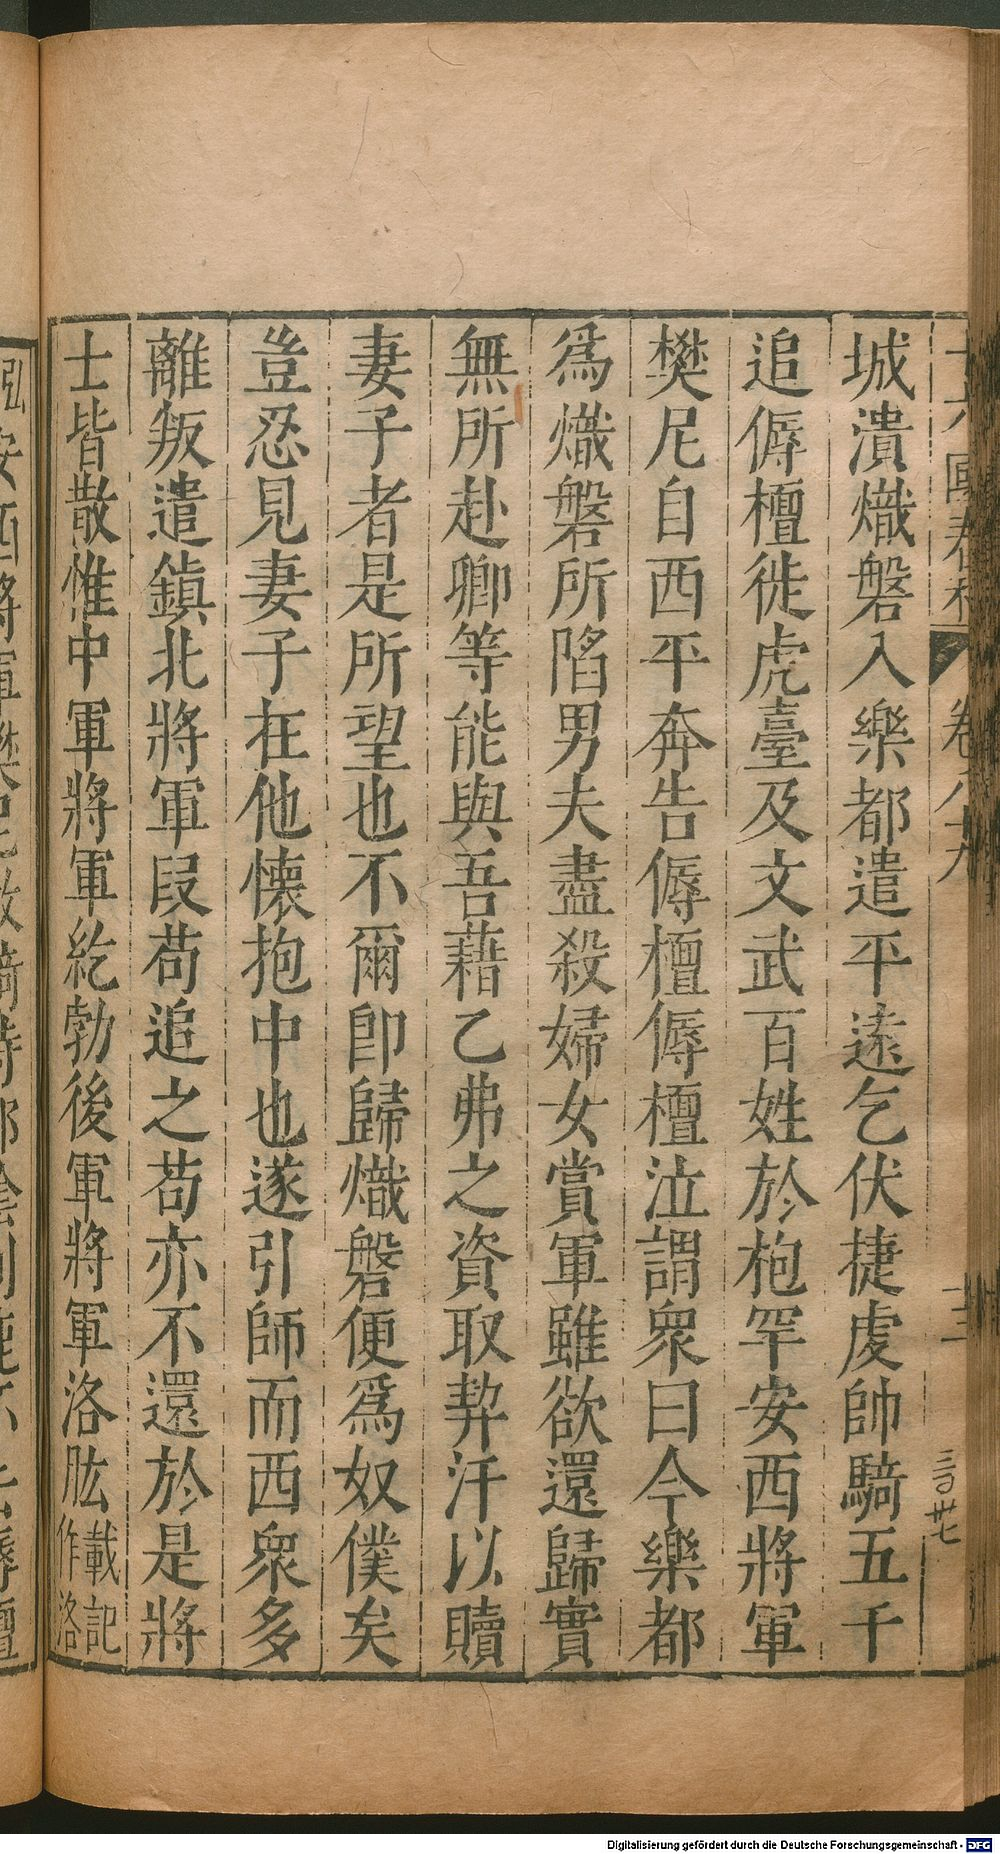 十六國春秋 卷八十九 十二
城潰熾磐入樂都遣平遠乞伏捷虔帥騎五千
追傉檀徙虎臺及文武百姓於枹罕安西將軍
樊尼自西平奔告傉檀傉檀泣謂衆曰今樂都
爲熾磐所陷男夫盡殺婦女賞軍雖欲還歸實
無所赴卿等能與吾藉乙弗之資取契汗以贖
妻子者是所望也不爾卽歸熾磐便爲奴僕矣
豈忍見妻子在他懷抱中也遂引師而西衆多
離叛遣鎮北將軍段苟追之苟亦不還於是將
士皆散惟中軍將軍紇勃後軍將軍洛肱載記作洛
Digitalisierung gefördert durch die Deutsche Forschungsgemeinschaft - DFG